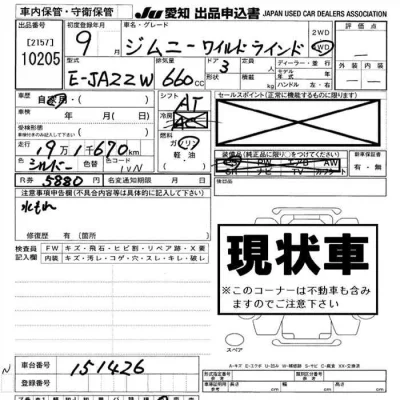 車内保管・守衛保管
JU 愛知 出品申込書 JAPAN USED CAR DEALERS ASSOCIATION
[2157]
10205
初度登録年月
9月
車名・グレード
ジムニー ワイルドウインド
2WD
4WD
評価点
型式
E-JA22W
660cc
ドア
3
ディーラー・並行
モデル年式
ハンドル 左・右
外装
内装
車歴
自家用
シフト
AT
冷房
AC
セールスポイント（正常に機能するものに限ります）
車検
年 月 日
受検形態
燃料
ガソリン
軽油
走行
19万1千670km
色
シルバー
色コード
装備品（純正品に限り）をつけてください
PW
AW
ナビ
TV
新車保証書
有・無
R券
5880円
名変通知期限
月 日
検印
注意事項申告欄（不具合内容等は具体的に記入して下さい）
水もれ
修復歴 有（箇所
検査員記入欄
FW キズ・飛石・ヒビ割・リペア跡・X要
内装 キズ・汚レ・コゲ・穴・スレ・キレ・破レ
現状車
※このコーナーは不動車も含みますのでご注意下さい
スペア
車台番号
151426
登録番号
N